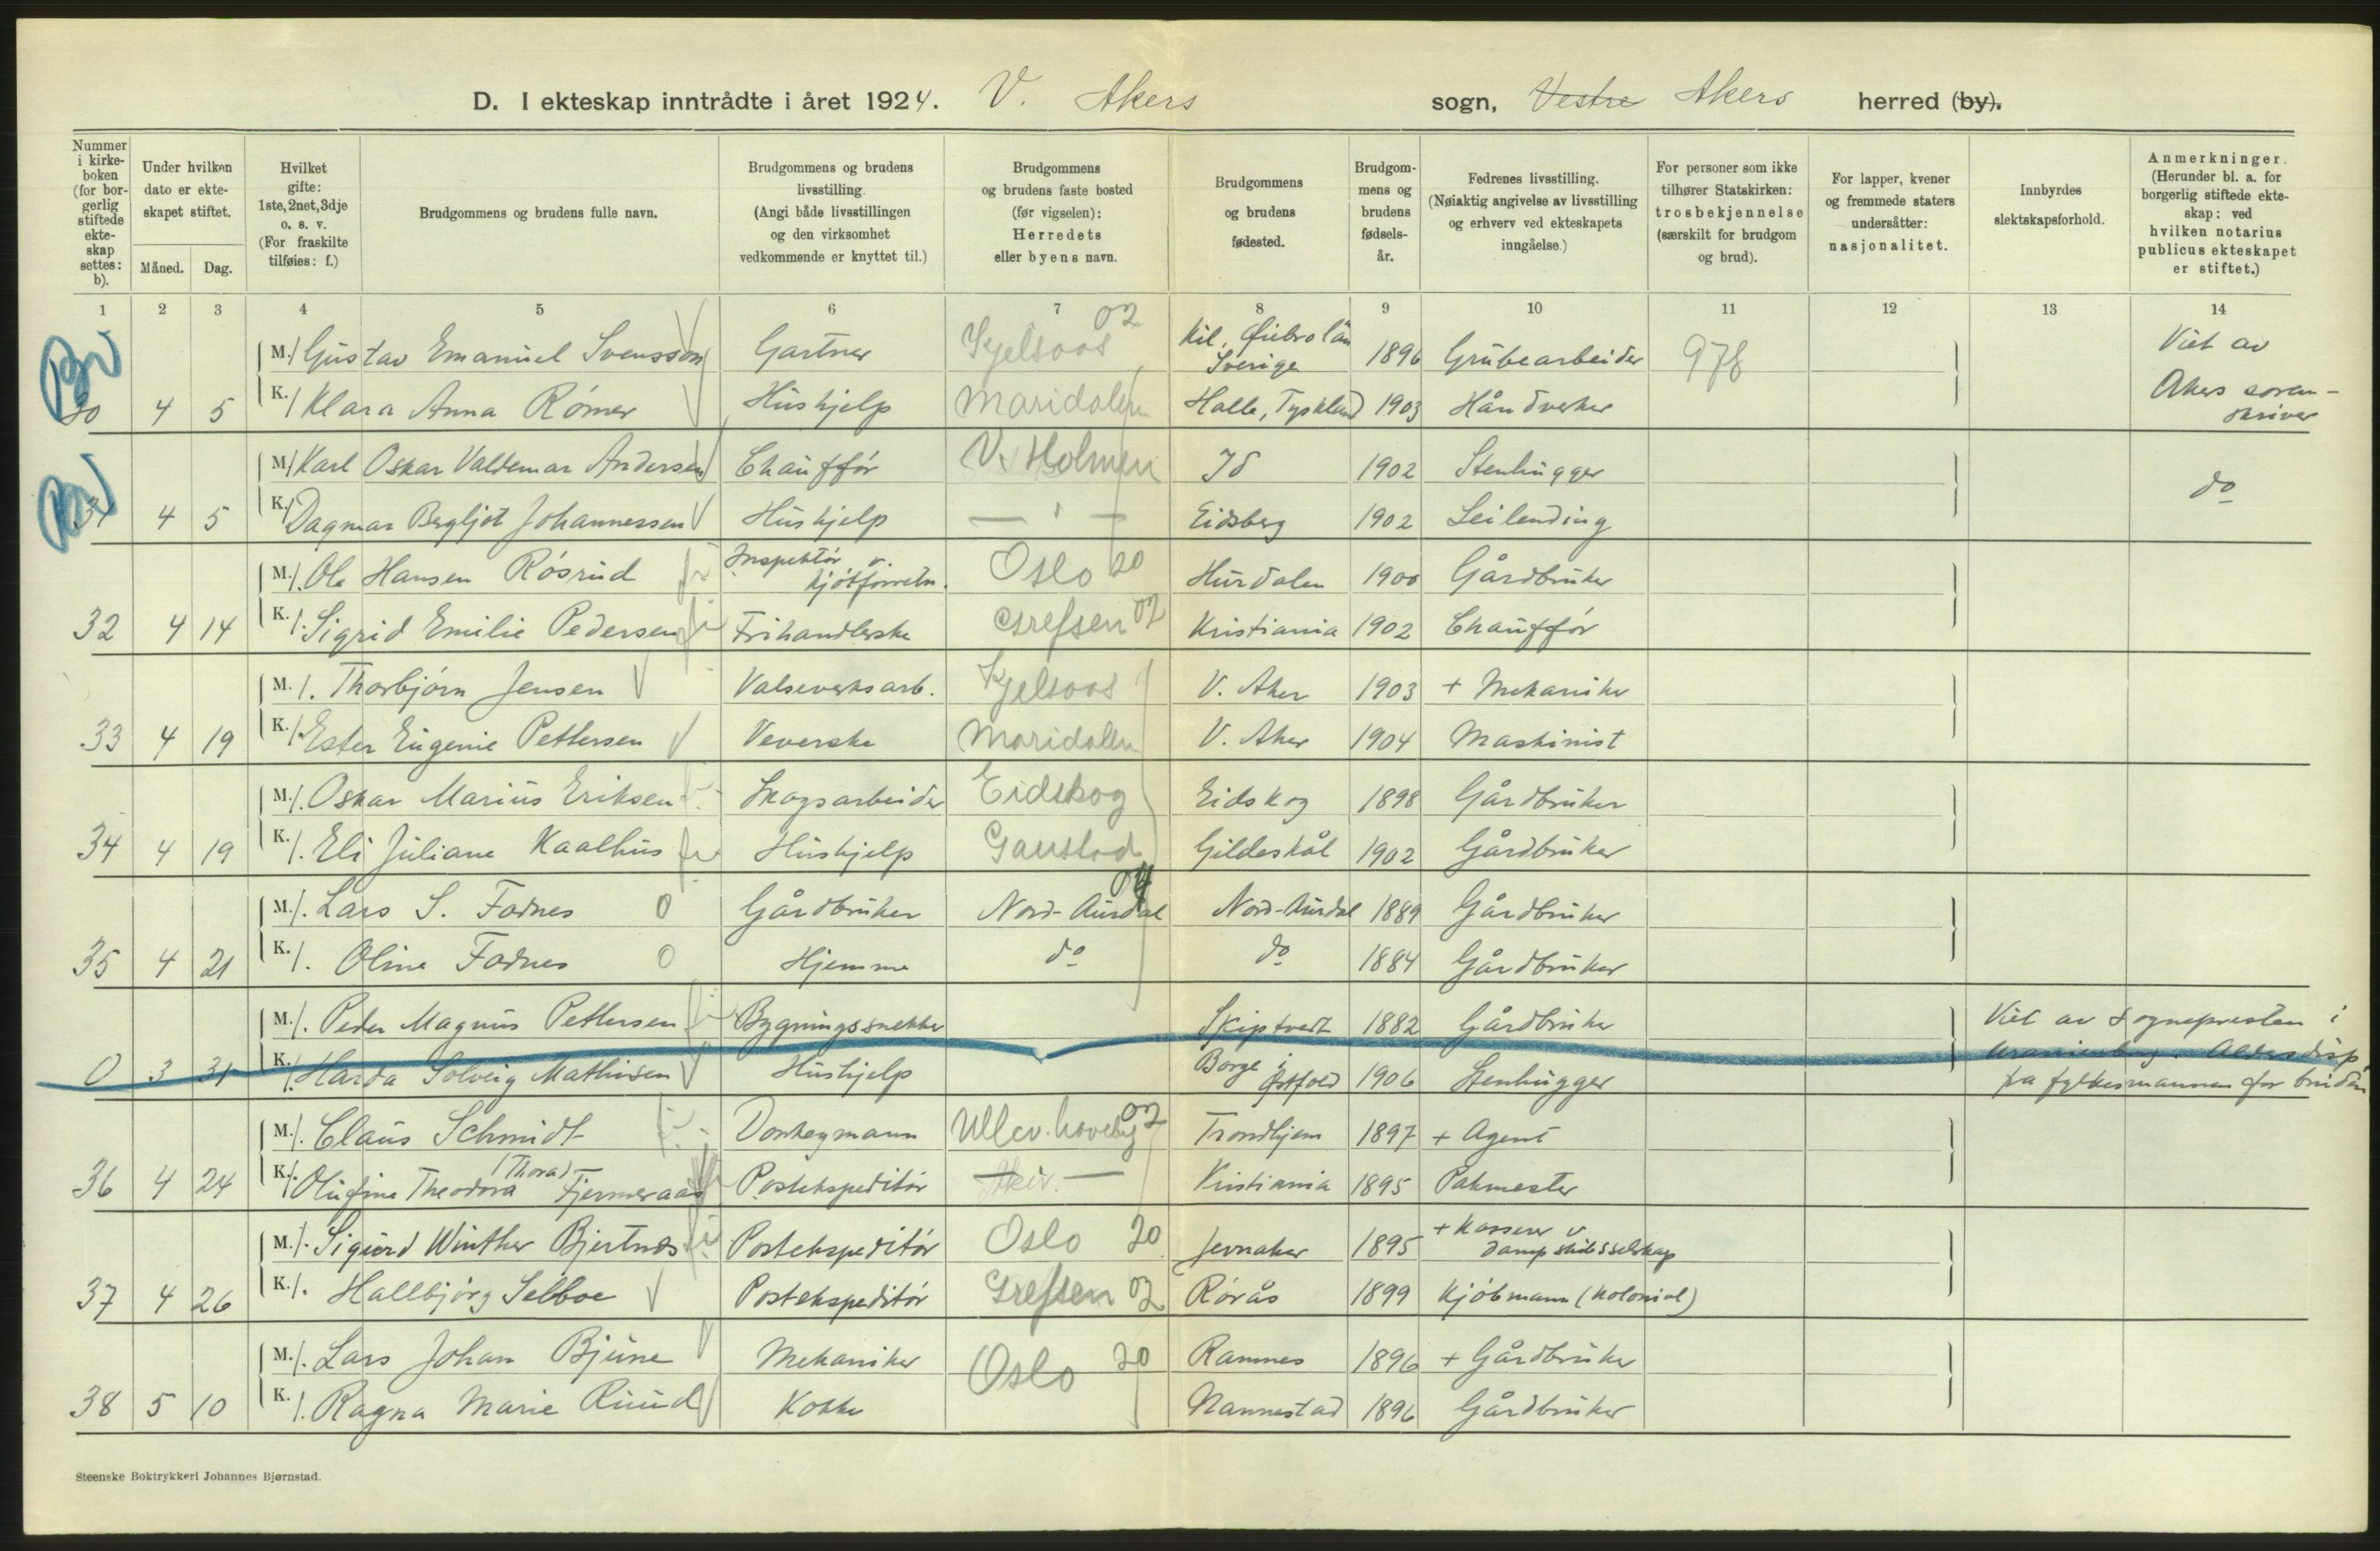 D. I ekteskap inntrådte i året 1924. V. Akers sogn, Vestre Akers herred (by).
Nummer i kirke-boken (for bor-gerlig stiftede ekte-skap settes: b).
Under hvilken dato er ekte-skapet stiftet.
Måned. Dag.
Hvilket gifte: 1ste, 2net, 3dje o. s. v. (For fraskilte tilføies: f.)
Brudgommens og brudens fulle navn.
Brudgommens og brudens livsstilling. (Angi både livsstillingen og den virksomhet vedkommende er knyttet til.)
Brudgommens og brudens faste bosted (før vigselen): Herredets eller byens navn.
Brudgommens og brudens fødested.
Brudgom-mens og brudens fødsels-år.
Fedrenes livsstilling. (Nøiaktig angivelse av livsstilling og erhverv ved ekteskapets inngåelse.)
For personer som ikke tilhører Statskirken: trosbekjennelse (særskilt for brudgom og brud).
For lapper, kvener og fremmede staters undersåtter: nasjonalitet.
Innbyrdes slektskapsforhold.
Anmerkninger. (Herunder bl. a. for borgerlig stiftede ekte-skap: ved hvilken notarius publicus ekteskapet er stiftet.)
1 2 3 4 5 6 7 8 9 10 11 12 13 14
M. 1 Gustav Emanuel Svensson Gartner Kjelsaas 02 Kil, Øiebro län Sverige 1896 Grubearbeider 978 Viet av
30 4 5 K. 1 Klara Anna Rømer Hushjelp Maridalen Halle, Tyskland 1903 Håndverker Akers soren-skriver
M. 1 Karl Oskar Valdemar Andersen Chauffør V. Holmen Id 1902 Stenhugger do
31 4 5 K. 1 Dagmar Bergljot Johannessen Hushjelp — " — Eidsberg 1902 Leilending
M. 1. Ole Hansen Røsrud Inspektør v. kjøtforretn. Oslo 20 Hurdalen 1900 Gårdbruker
32 4 14 K. 1. Sigrid Emilie Pedersen Frihandlerske Grefsen 02 Kristiania 1902 Chauffør
M. 1. Thorbjørn Jensen Valseverksarb. Kjelsaas V. Aker 1903 + Mekaniker
33 4 19 K. 1. Ester Eugenie Pettersen Veverske Maridalen V. Aker 1904 Maskinist
M. 1. Oskar Marius Eriksen Skogsarbeider Eidskog Eidskog 1898 Gårdbruker
34 4 19 K. 1. Eli Juliane Kaalhus Hushjelp Gaustad Gildeskål 1902 Gårdbruker
M. 1. Lars S. Fadnes 0 Gårdbruker Nord-Aurdal 04 Nord-Aurdal 1889 Gårdbruker
35 4 21 K. 1. Oline Fadnes 0 Hjemme do do 1884 Gårdbruker
M. 1. Peder Magnus Pettersen Bygningssnekker Skiptvedt 1882 Gårdbruker Viet av sognepresten i
0 3 31 K. 1. Harda Solveig Mathisen Hushjelp Borge i Østfold 1906 Stenhugger Uranienborg. Aldersdisp. fra fylkesmannen for bruden
M. 1. Claus Schmidt Donkeymann Ullev. haveby 02 Trondhjem 1897 + Agent
36 4 24 K. 1. Olufine Theodora (Thora) Fjermeraas Postekspeditør — Kristiania 1895 Pakmester
M. 1. Sigurd Winther Bjertnæs Postekspeditør Oslo 20 Jevnaker 1895 + Kasserer v dampskibsselskap
37 4 26 K. 1. Hallbjørg Selboe Postekspeditør Grefsen 02 Rørås 1899 Kjøbmann (kolonial)
M. 1. Lars Johan Bjune Mekaniker Oslo 20 Ramnes 1896 + Gårdbruker
38 5 10 K. 1. Ragna Marie Ruud Kokke Nannestad 1896 Gårdbruker
Steenske Boktrykkeri Johannes Bjørnstad.